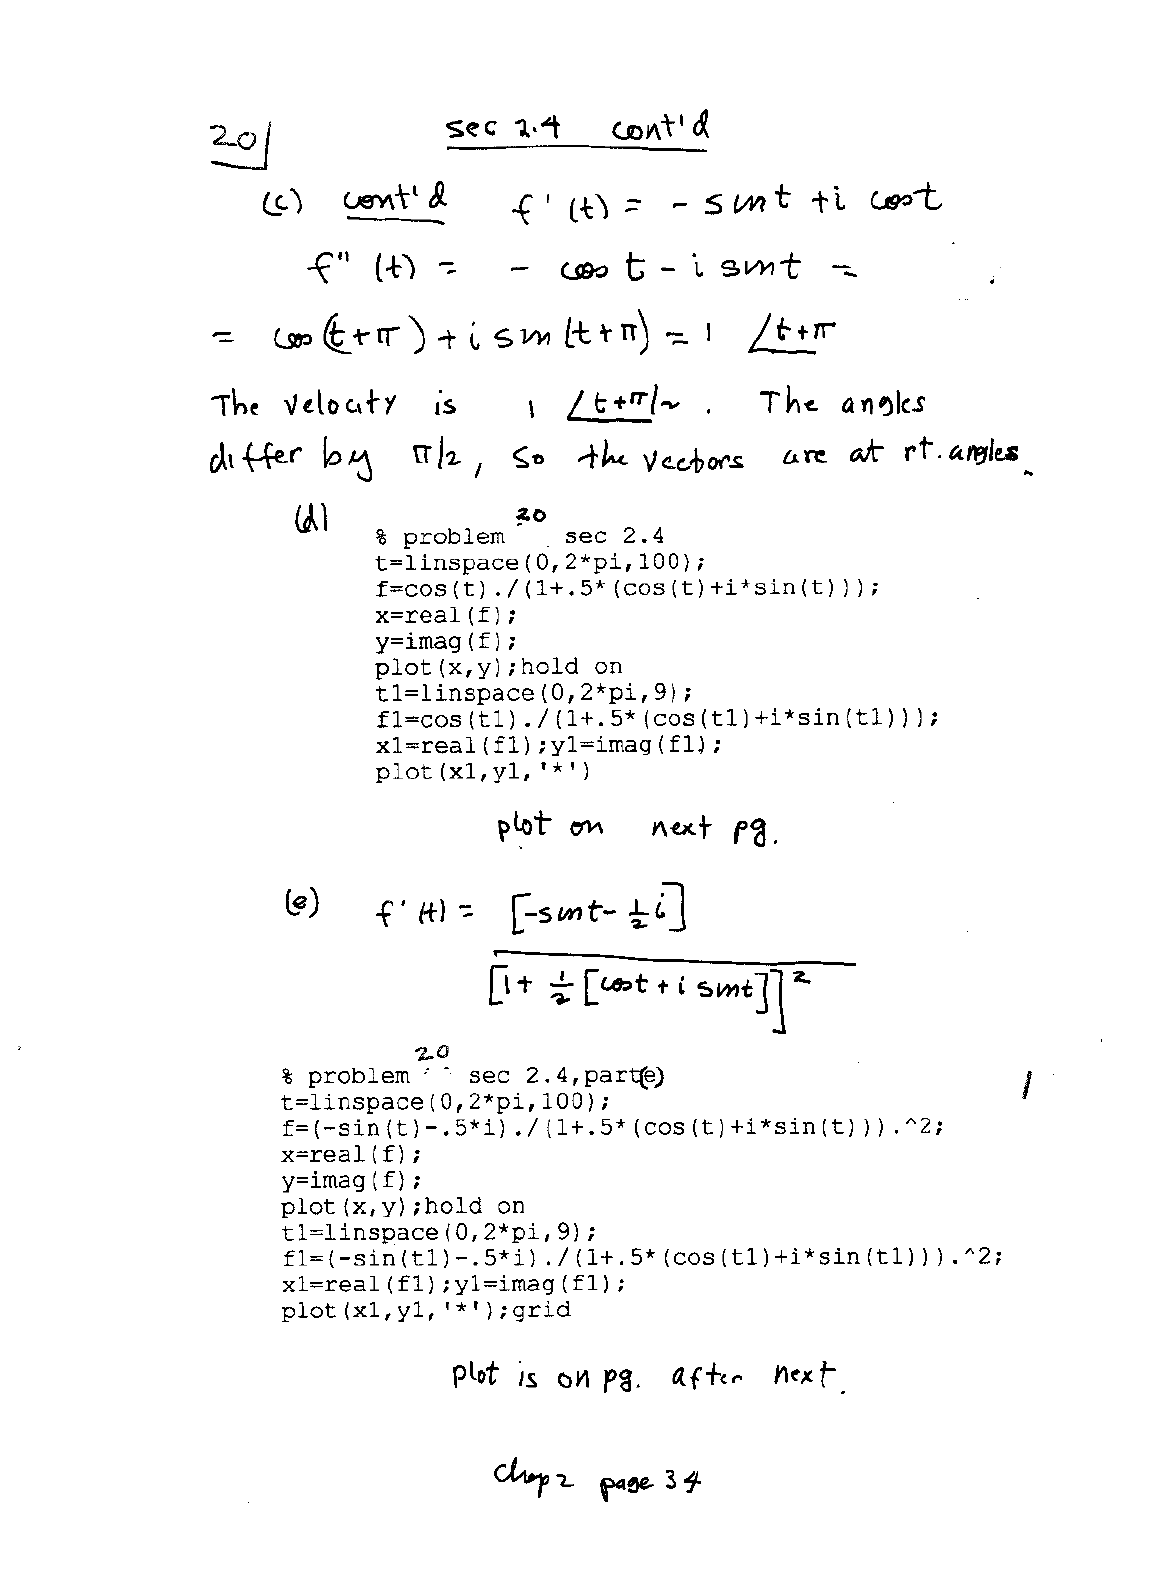 20
sec 2.4 cont'd
(c) cont'd f'(t) = - sint + i cost
f"(t) = - cos t - i sint =
= cos(t+π) + i sin(t+π) = 1 ∠t+π
The velocity is 1 ∠t+π/2. The angles
differ by π/2, so the vectors are at rt. angles.
(d)
% problem 20 sec 2.4
t=linspace(0,2*pi,100);
f=cos(t)./(1+.5*(cos(t)+i*sin(t)));
x=real(f);
y=imag(f);
plot(x,y);hold on
t1=linspace(0,2*pi,9);
f1=cos(t1)./(1+.5*(cos(t1)+i*sin(t1)));
x1=real(f1);y1=imag(f1);
plot(x1,y1,'*')
plot on next pg.
(e) f'(t) = [-sint - 1/2 i]
[1 + 1/2 [cost + i sint]]²
% problem 20 sec 2.4,part(e)
t=linspace(0,2*pi,100);
f=(-sin(t)-.5*i)./(1+.5*(cos(t)+i*sin(t))).^2;
x=real(f);
y=imag(f);
plot(x,y);hold on
t1=linspace(0,2*pi,9);
f1=(-sin(t1)-.5*i)./(1+.5*(cos(t1)+i*sin(t1))).^2;
x1=real(f1);y1=imag(f1);
plot(x1,y1,'*');grid
plot is on pg. after next.
chap 2 page 34